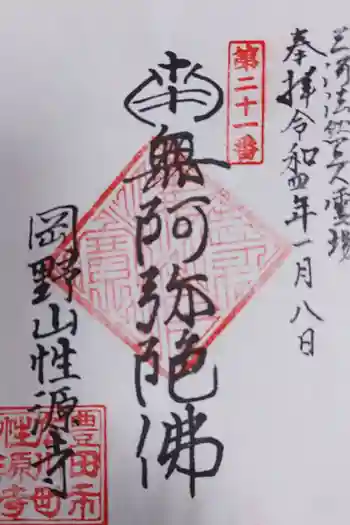 三河法然上人霊場
奉拝 令和四年一月八日
第二十一番
無阿弥陀佛
岡野山性源寺
豊田市
性源寺